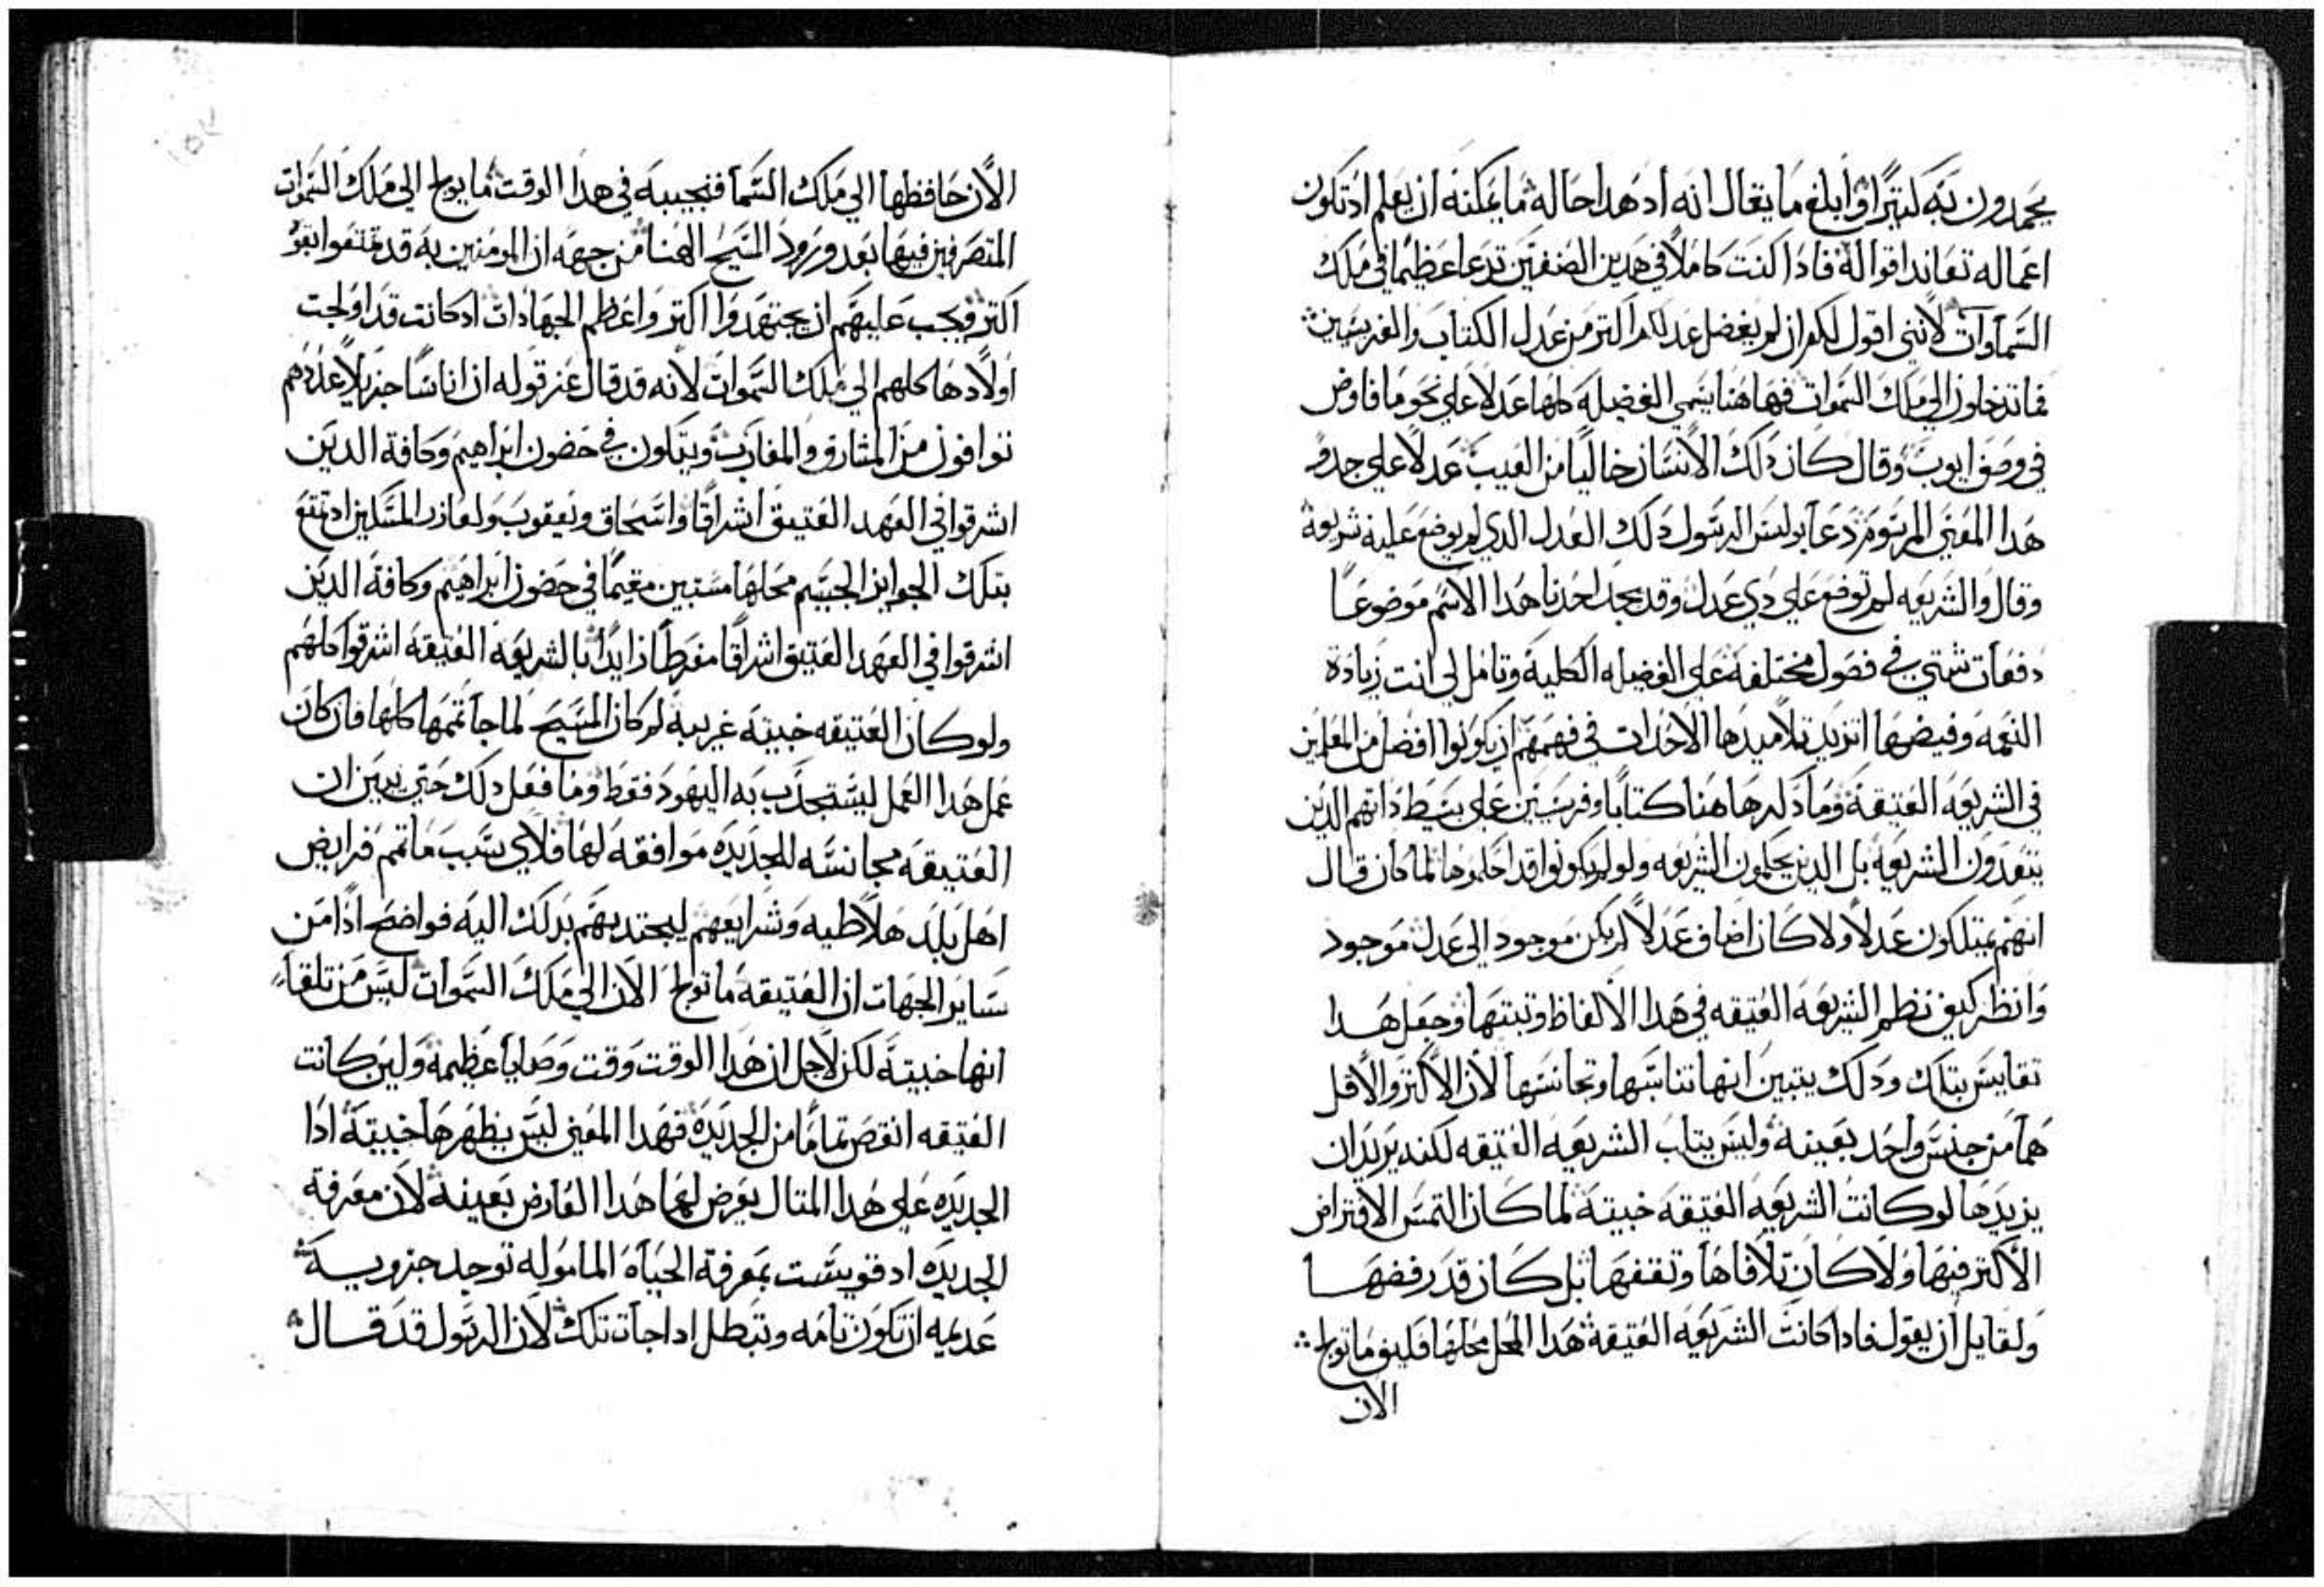 يجدون به كثيرًا وابلغ ما يقال انه اد هدا حاله ما يمكنه ان يعلم اد تكون
اعماله تعاند اقواله فادا كنت كاملًا في هدين الصنفين تدعا عظيمًا في ملك
السماوات لانني اقول لكم ان لم يفضل عدلكم اكتر من عدل الكتاب والفريسيين
فما تدخلون الي ملك السموات فهاهنا يسمي الفضيله كلها عدلًا علي نحو ما فاوض
في وصف ايوب وقال كان دلك الانسان خاليًا من العيب عدلًا علي جدو
هدا المعني المرسوم دعا بولس الرسول دلك العدل الدي لم يوضع عليه شريعة
وقال والشريعه لم توضع علي دي عدل وقد يجد احدنا هدا الاسم موضوعًا
دفعات شتي في فصول مختلفة علي الفضيله الكلية وتامل لي انت زيادة
النعمه وفيضها اد تريد تلاميدها الاحدات في فهمهم ان يكونوا افضل من المعلمين
في الشريعه العتيقة وما دكر هاهنا كتابًا وفريسيين علي بسيط داتهم الدين
يتعدون الشريعه بل الدين يحكمون الشريعه ولو لم يكونوا قد احكموها لما كان قال
انهم يمتلكون عدلًا ولا كان اضاف عدلًا لم يكن موجود الي عدل موجود
وانظر كيف نظم الشريعه العتيقه في هدا الالفاظ وتبتها وجعل هدا
تقايس بتلك ودلك يتبين انها تناسبها وتجانسها لان الاكتر والاقل
هما من جنس واحد بعينه وليس يتلب الشريعه العتيقه لكنه يريد ان
يزيدها لو كانت الشريعه العتيقه خبيته لما كان التمس الافتراض
الاكتر فيها ولا كان تلافاها وتقفها بل كان قد رفضها
ولقايل ان يقول فادا كانت الشريعه العتيقة هدا المحل محلها فكيف ما تولج
الان
الان حافظها الي ملك السما فنجيبه في هدا الوقت ما يولج الي ملك السموات
المتصرفين فيها بعد ورود المسيح الهنا من جهه ان المومنين به قد تمتعوا بقوه
اكتر فيجب عليهم ان يجتهدوا اكتر واعظم الجهادات اد كانت قد اولجت
اولادها كلهم الي ملك السموات لانه قد قال عز قوله ان اناسًا جزيلًا عددهم
توافون من المشارق والمغارب ويتكون في حضون ابراهيم وكافة الدين
اشرقوا في العهد العتيق اشراقًا واسحاق ويعقوب ولعازر المسكين اد تمتع
بتلك الجوايز الجسيم محلها مستبين مقيمًا في حضون ابراهيم وكافة الدين
اشرقوا في العهد العتيق اشراقًا مفرطًا زايدًا بالشريعه العتيقه اشرقوا كلهم
ولو كان العتيقه خبيته غريبة لم كان المسيح لما جا تممها كلها فان كان
عمل هدا العمل ليستجدب به اليهود فقط وما فعل دلك حتي يبين ان
العتيقه مجانسه للجديده موافقه لها فلاي سبب ما تمم فرايض
اهل بلد هلاطيه وشرايعهم ليجتدبهم بدلك اليه فواضح ادًا من
ساير الجهات ان العتيقه ما تولج الان الي ملك السموات ليس من تلقا
انها خبيته لكن لاجل ان هدا الوقت وقت وصايا عظيمه ولين كانت
العتيقه انقص تمامًا من الجديده فهدا المعني ليس يظهرها خبيته ادا
الجديده علي هدا المتال يعرض لهما هدا العارض بعينه لان معرفة
الجديده اد قويست بمعرفة الحياه الماموله توجد جزويه
عديمه ان تكون تامه وتبطل ادا جات تلك لان الرسول قد قال